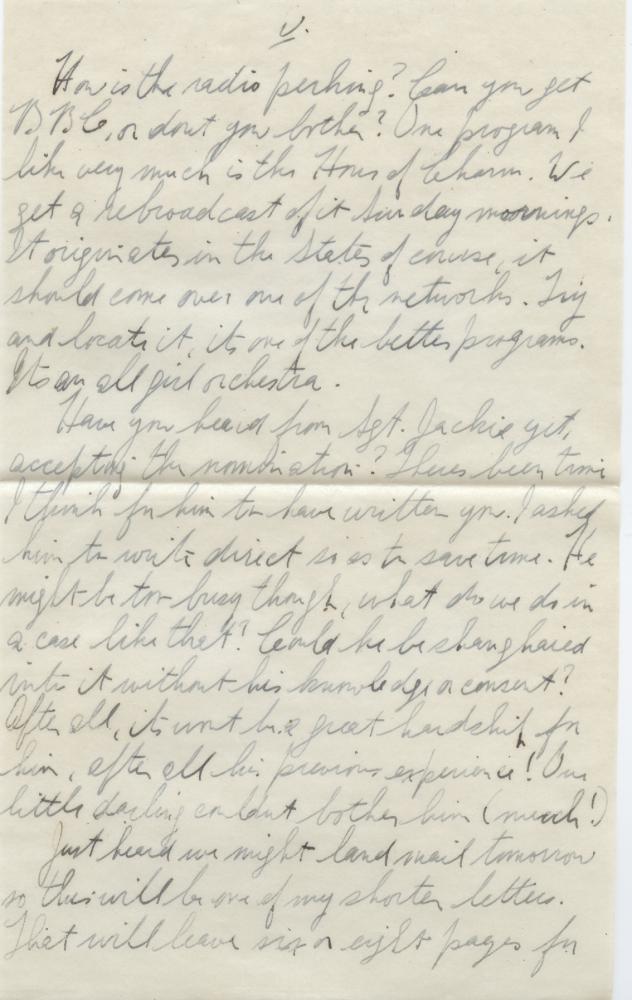 V.
How is the radio perking? Can you get
BBC, or dont you bother? One program I
like very much is the Hour of Charm. We
get a rebroadcast of it Sunday mornings.
It originates in the States of course, it
should come over one of the networks. Try
and locate it, its one of the better programs.
Its an all girl orchestra.
Have you heard from Sgt. Jackie yet,
accepting the nomination? Theres been time
I think for him to have written you. I asked
him to write direct so as to save time. He
might be too busy though, what do we do in
a case like that? Could he be shanghaied
into it without his knowledge or consent?
After all, its wont be a great hardship for
him, after all his previous experience! Our
little darling couldnt bother him (much!)
Just heard we might land mail tomorrow
so this will be one of my shorter letters.
That will leave six or eight pages for